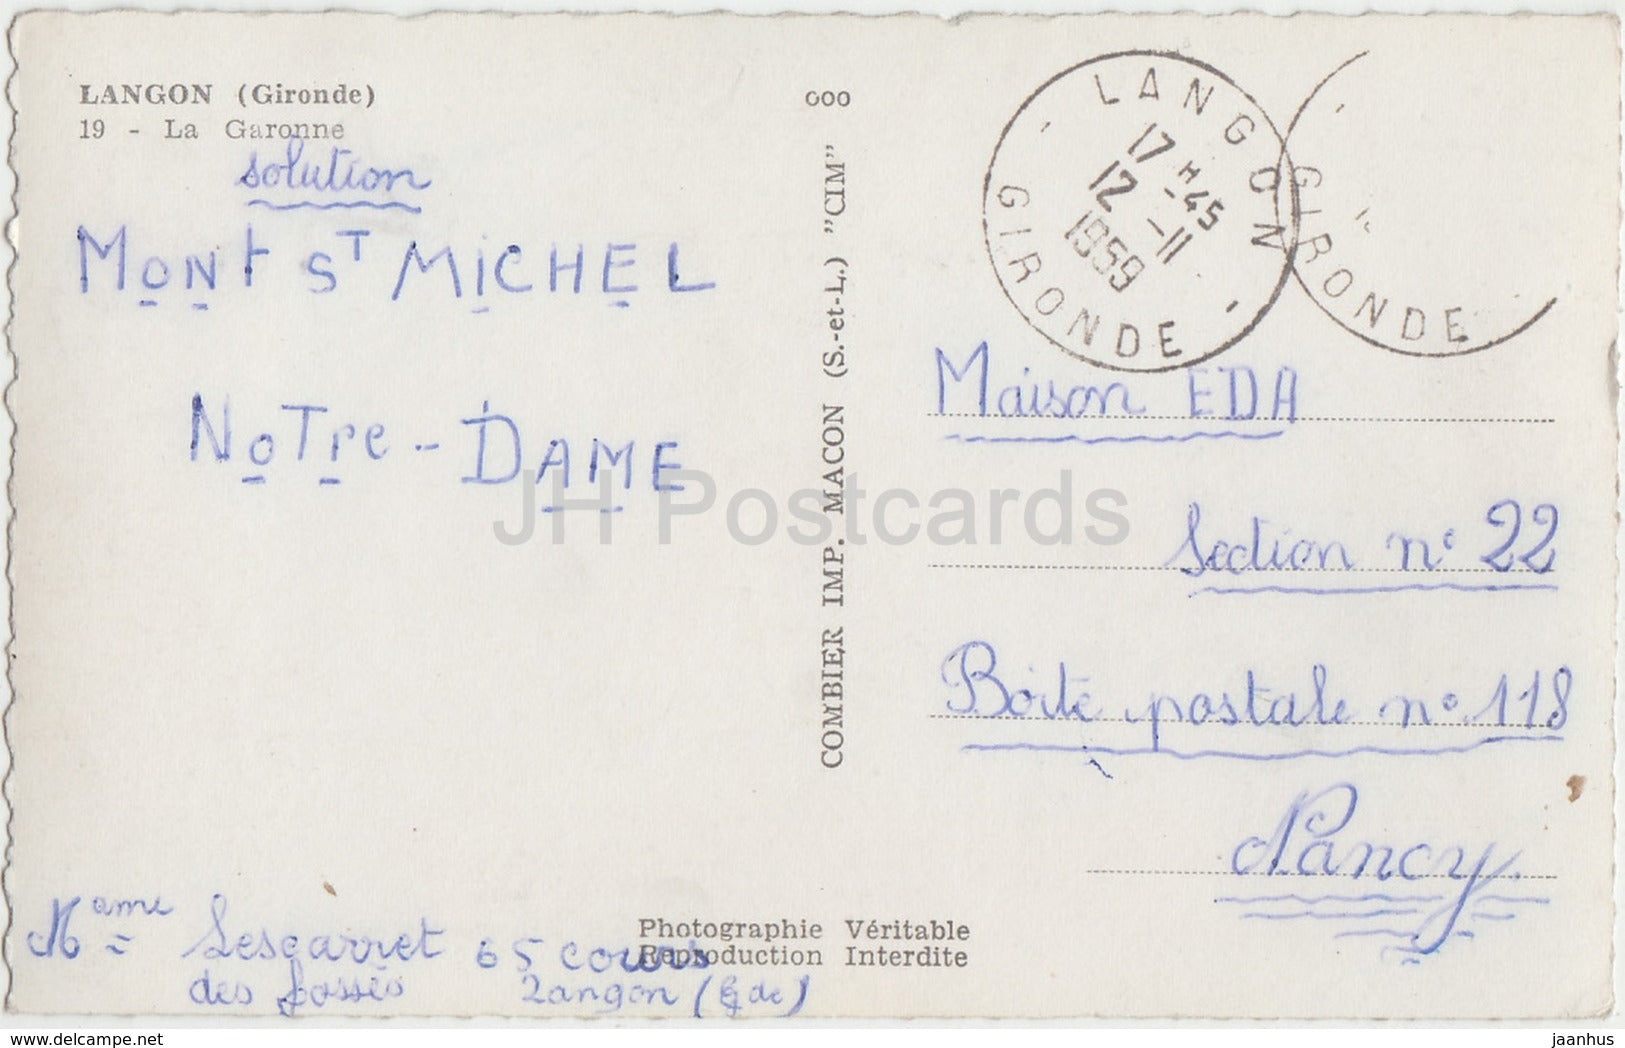 LANGON (Gironde)
19 - La Garonne
solution
MONt ST MiCHEL
NoTre - DAME
Mame Lescarret 65 cours
des fossés Langon (Gde)
Photographie Véritable
Reproduction Interdite
COMBIER IMP. MACON (S.-et-L.) "CIM"
LANGON
17 H 45
12 -11
1959
GIRONDE
GIRONDE
Maison EDA
Section n° 22
Boite postale n° 118
Nancy
JH Postcards
www.delcampe.net
jaanhus